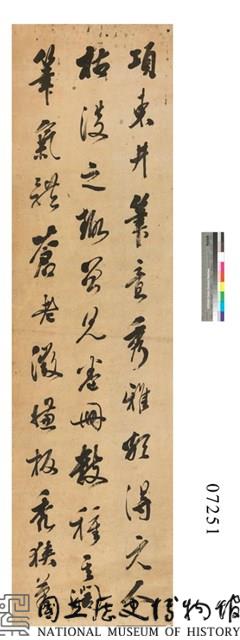 項東井筆意秀雅頗得元人
枯淡之趣曾見卷冊數種其
筆氣穉蒼老微嫌板禿
07251
國立歷史博物館
NATIONAL MUSEUM OF HISTORY